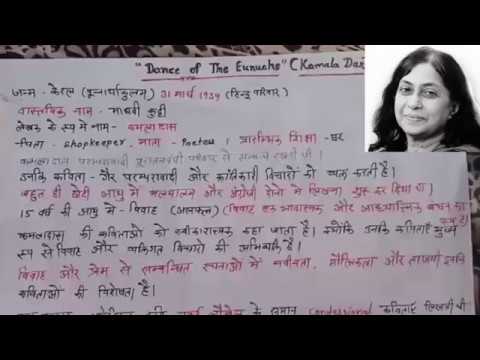 "Dance of The Eunuchs" (Kamala Das
जन्म - केरल (पून्नायुर्कुलम) 31 मार्च 1934 (हिन्दू परिवार)
वास्तविक नाम - माधवी कुट्टी
लेखक के रूप में नाम - कमला दास
-पिता - shopkeeper, माता - Poetess। प्रारम्भिक शिक्षा - घर
कमलादास परम्परावादी परिवार से सम्बन्ध रखती थी।
उनकि कविता - गैर परम्परावादी और क्रांतिकारी विचारों को व्यक्त करती है।
बहुत ही छोटी आयु में मलयालम और अंग्रेजी दोनो में लिखना शुरू कर दिया था।
15 वर्ष की आयु में - विवाह (असफल) (विवाह का भावात्मक और आध्यात्मिक बंधन का
कमलादास की कविताओं को स्वीकारात्मक कहा जाता है। क्योंकि उनकि कविताएं मुख्य
रूप से विवाह और व्यक्तिगत विचारों की अभिव्यक्ति है।
विवाह और प्रेम से सम्बन्धित रचनाओं में नवीनता, मौलिकता और ताजगी उनकि
कविताओं की विशेषता है।
के समान confessional कविताएं लिखती थी